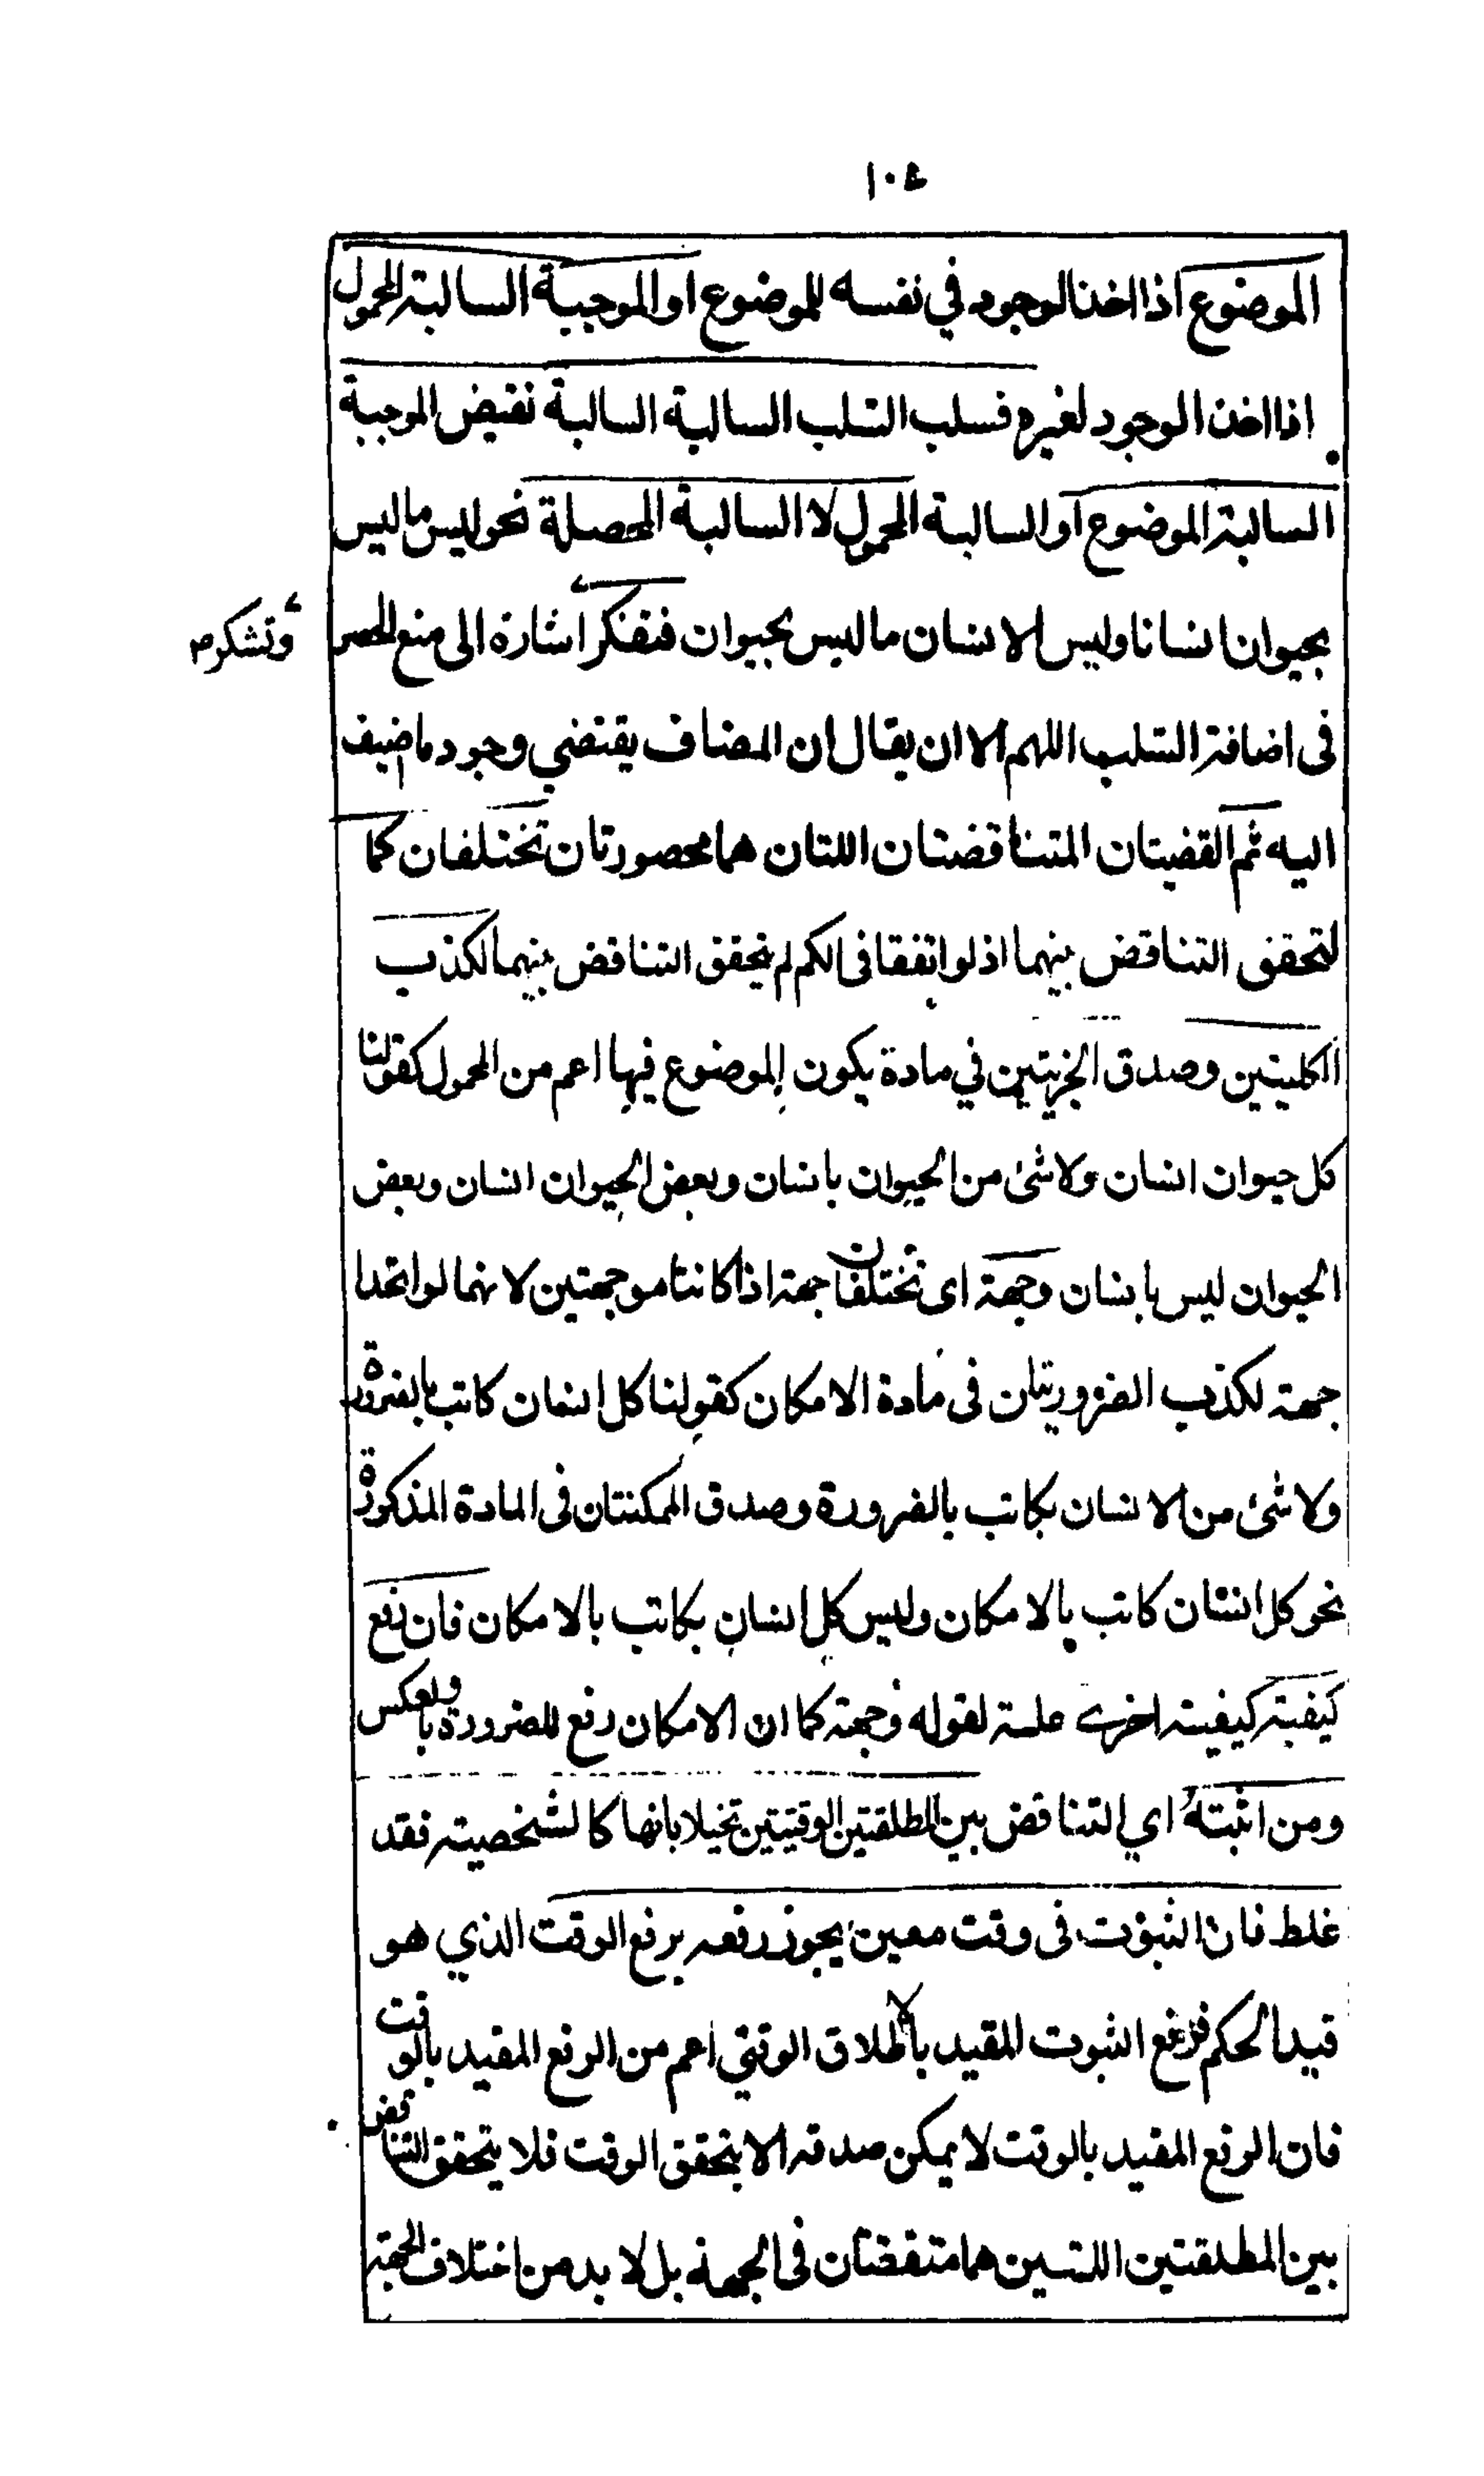 ١٠٤
الموضوع اذا اخذ الوجود في نفسه للموضوع او الموجبة السالبة المحمول
اذا اخذ الوجود لغيره فسلب السلب السالبة السالبة نقيض الموجبة
السالبة الموضوع او السالبة المحمول لا السالبة المحصلة نحو ليس ما ليس
بحيوان انسانا وليس الانسان ما ليس بحيوان فتفكر اشارة الى منع الحصر
وتشكر م
فى اضافة السلب اللهم الا ان يقال ان المضاف يقتضي وجود ما اضيف
اليه ثم القضيتان المتناقضتان اللتان هما محصورتان تختلفان كما
لتحقق التناقض بينهما اذ لو اتفقا فى الكم لم يتحقق التناقض بينهما لكذب
الكليتين وصدق الجزئيتين في مادة يكون الموضوع فيها اعم من المحمول كقولنا
كل حيوان انسان ولا شئ من الحيوان بانسان وبعض الحيوان انسان وبعض
الحيوان ليس بانسان وجهة اى تختلفان جهة اذا كانتا موجهتين لانهما لو اتحدا
جهة لكذب الضروريتان فى مادة الامكان كقولنا كل انسان كاتب بالضرورة
ولا شئ من الانسان بكاتب بالضرورة وصدق الممكنتان فى المادة المذكورة
نحو كل انسان كاتب بالامكان وليس كل انسان بكاتب بالامكان فان رفع
كيفية كيفية اخرى علة لقوله وجهة كما ان الامكان رفع للضرورة وبالعكس
ومن اثبته اي التناقض بين المطلقتين الوقتيتين تخيلا بانها كالشخصية فقد
غلط فان الثبوت فى وقت معين يجوز رفعه برفع الوقت الذي هو
قيد الحكم فرفع الثبوت المقيد بالاطلاق الوقتي اعم من الرفع المقيد بالوقت
فان الرفع المقيد بالوقت لا يمكن صدقه الا بتحقق الوقت فلا يتحقق التناقض
بين المطلقتين اللتين هما متفقتان فى الجهة بل لا بد من اختلاف الجهة